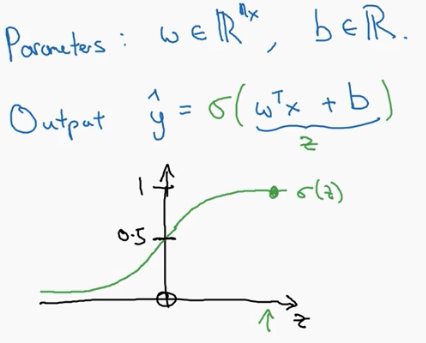 Parameters: w ∈ ℝⁿˣ, b ∈ ℝ.
Output ŷ = σ(wᵀx + b)
z
1
σ(z)
0.5
↑ z